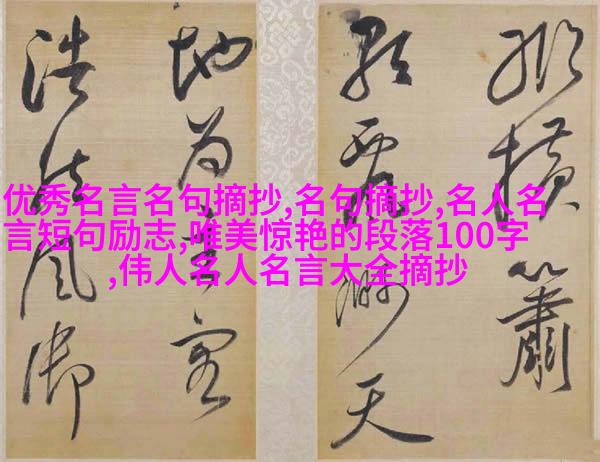 优秀名言名句摘抄,名句摘抄,名人名
言短句励志,唯美惊艳的段落100字
,伟人名人名言大全摘抄
橫簫
霞天
地为
浩然风御